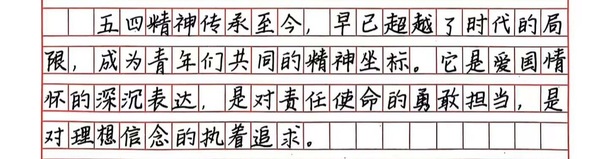 五四精神传承至今，早已超越了时代的局
限，成为青年们共同的精神坐标。它是爱国情
怀的深沉表达，是对责任使命的勇敢担当，是
对理想信念的执着追求。